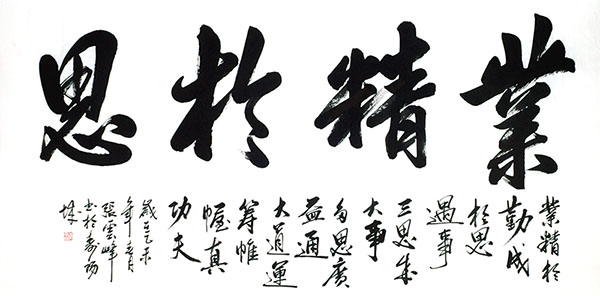 業精於思
業精於
勤成
於思
遇事
三思成
大事
多思廣
益通
大道運
籌帷
幄真
功夫
歲在乙未
年春月
張雲峰
书於